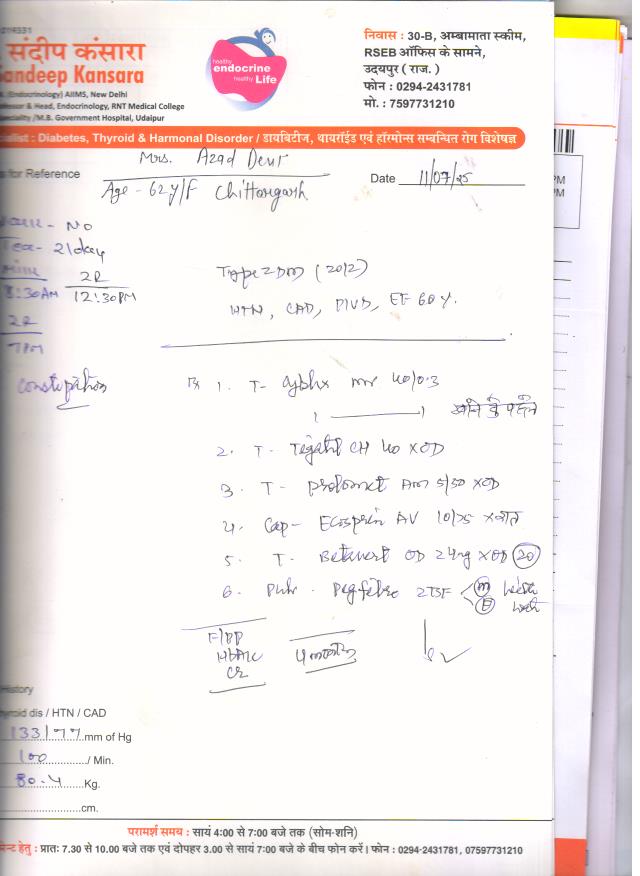 संदीप कंसारा
andeep Kansara
(Endocrinology) AIIMS, New Delhi
& Head, Endocrinology, RNT Medical College
/M.B. Government Hospital, Udaipur
healthy
endocrine
healthy Life
निवास : 30-B, अम्बामाता स्कीम,
RSEB ऑफिस के सामने,
उदयपुर ( राज. )
फोन : 0294-2431781
मो. : 7597731210
ialist : Diabetes, Thyroid & Harmonal Disorder / डायबिटीज, थायरॉईड एवं हॉरमोन्स सम्बन्धित रोग विशेषज्ञ
Mrs. Azad
s for Reference
Age - 62 y/F
Date 11/07/25
- No
Tea - 2/day
2R
8:30AM 12:30PM
2R
7PM
Type 2 DM (2012)
HTN, CAD, PIVD, EF 60%
Constipation
Rx 1. T- mr 40/0.3
1 ———— 1 खाने के पहले
2. T- CH 40 X OD
3. T- AM 5/50 X OD
4. Cap- Ecosprin AV 10/75 X रात
5. T- OD 24mg X OD (20)
6. 2TSF
F/PP
HbA1c
Cr
History
yroid dis / HTN / CAD
133/77 mm of Hg
100 / Min.
80.4 Kg.
cm.
परामर्श समय : सायं 4:00 से 7:00 बजे तक (सोम-शनि)
मेन्ट हेतु : प्रातः 7.30 से 10.00 बजे तक एवं दोपहर 3.00 से सायं 7:00 बजे के बीच फोन करें। फोन : 0294-2431781, 07597731210
PM
PM